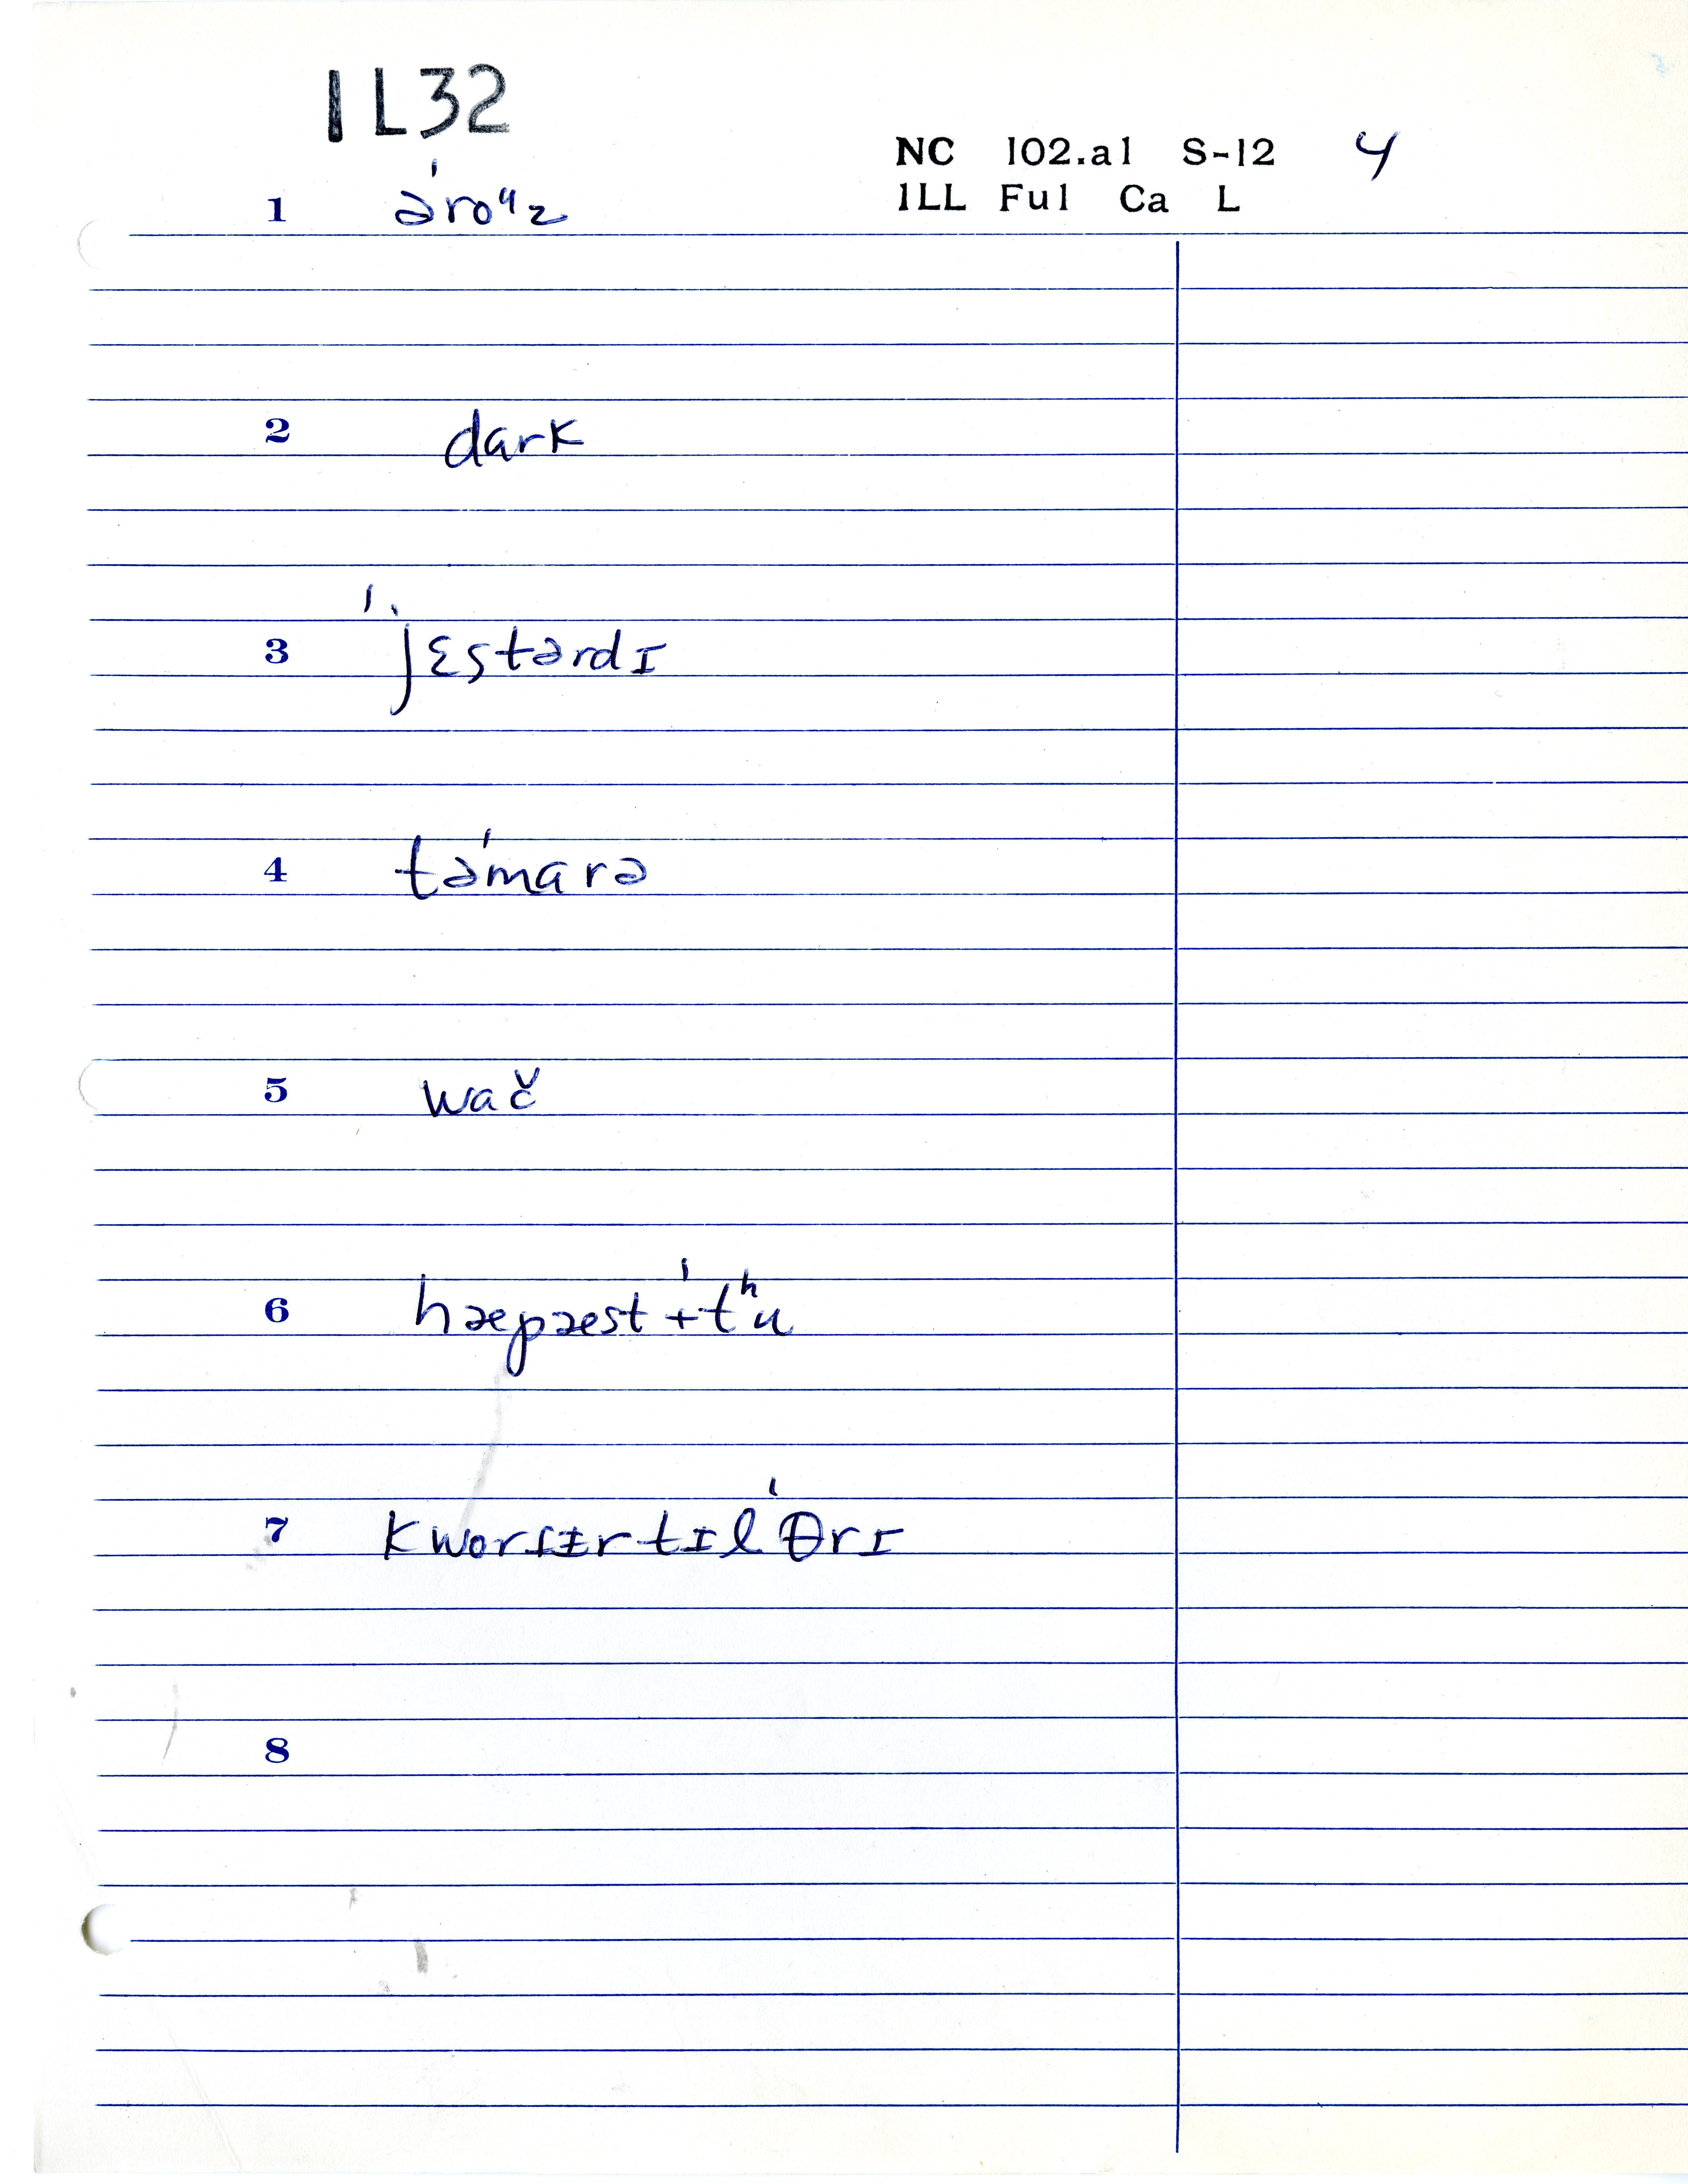 1L32
NC 102.a1 S-12 4
1LL Ful Ca L
1 ə́roᶸz
2 dark
3 ˈjɛstərdɪ
4 təˈmarə
5 wač
6 hæpæstˈɨtʰu
7 kworɾɪrtɪlˈθrɪ
8